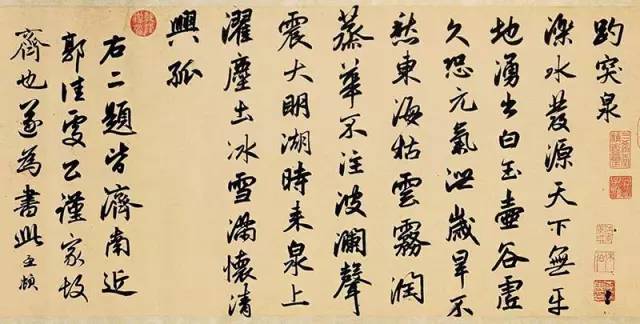 趵突泉
濼水發源天下無平
地湧出白玉壺谷虛
久恐元氣泄歲旱不
愁東海枯雲霧潤
蒸華不注波瀾聲
震大明湖時来泉上
濯塵土冰雪滿懷清
興孤
右二題皆濟南近
郭佳處公謹家故
齊也遂為書此孟頫